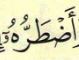 أَضْطَرُّهُۥٓ